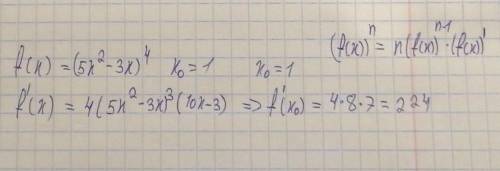 (f(x))^n = n(f(x))^{n-1} · (f(x))'
f(x) = (5x^2 - 3x)^4 x_0 = 1 x_0 = 1
f'(x) = 4(5x^2 - 3x)^3 (10x - 3) => f'(x_0) = 4·8·7 = 224